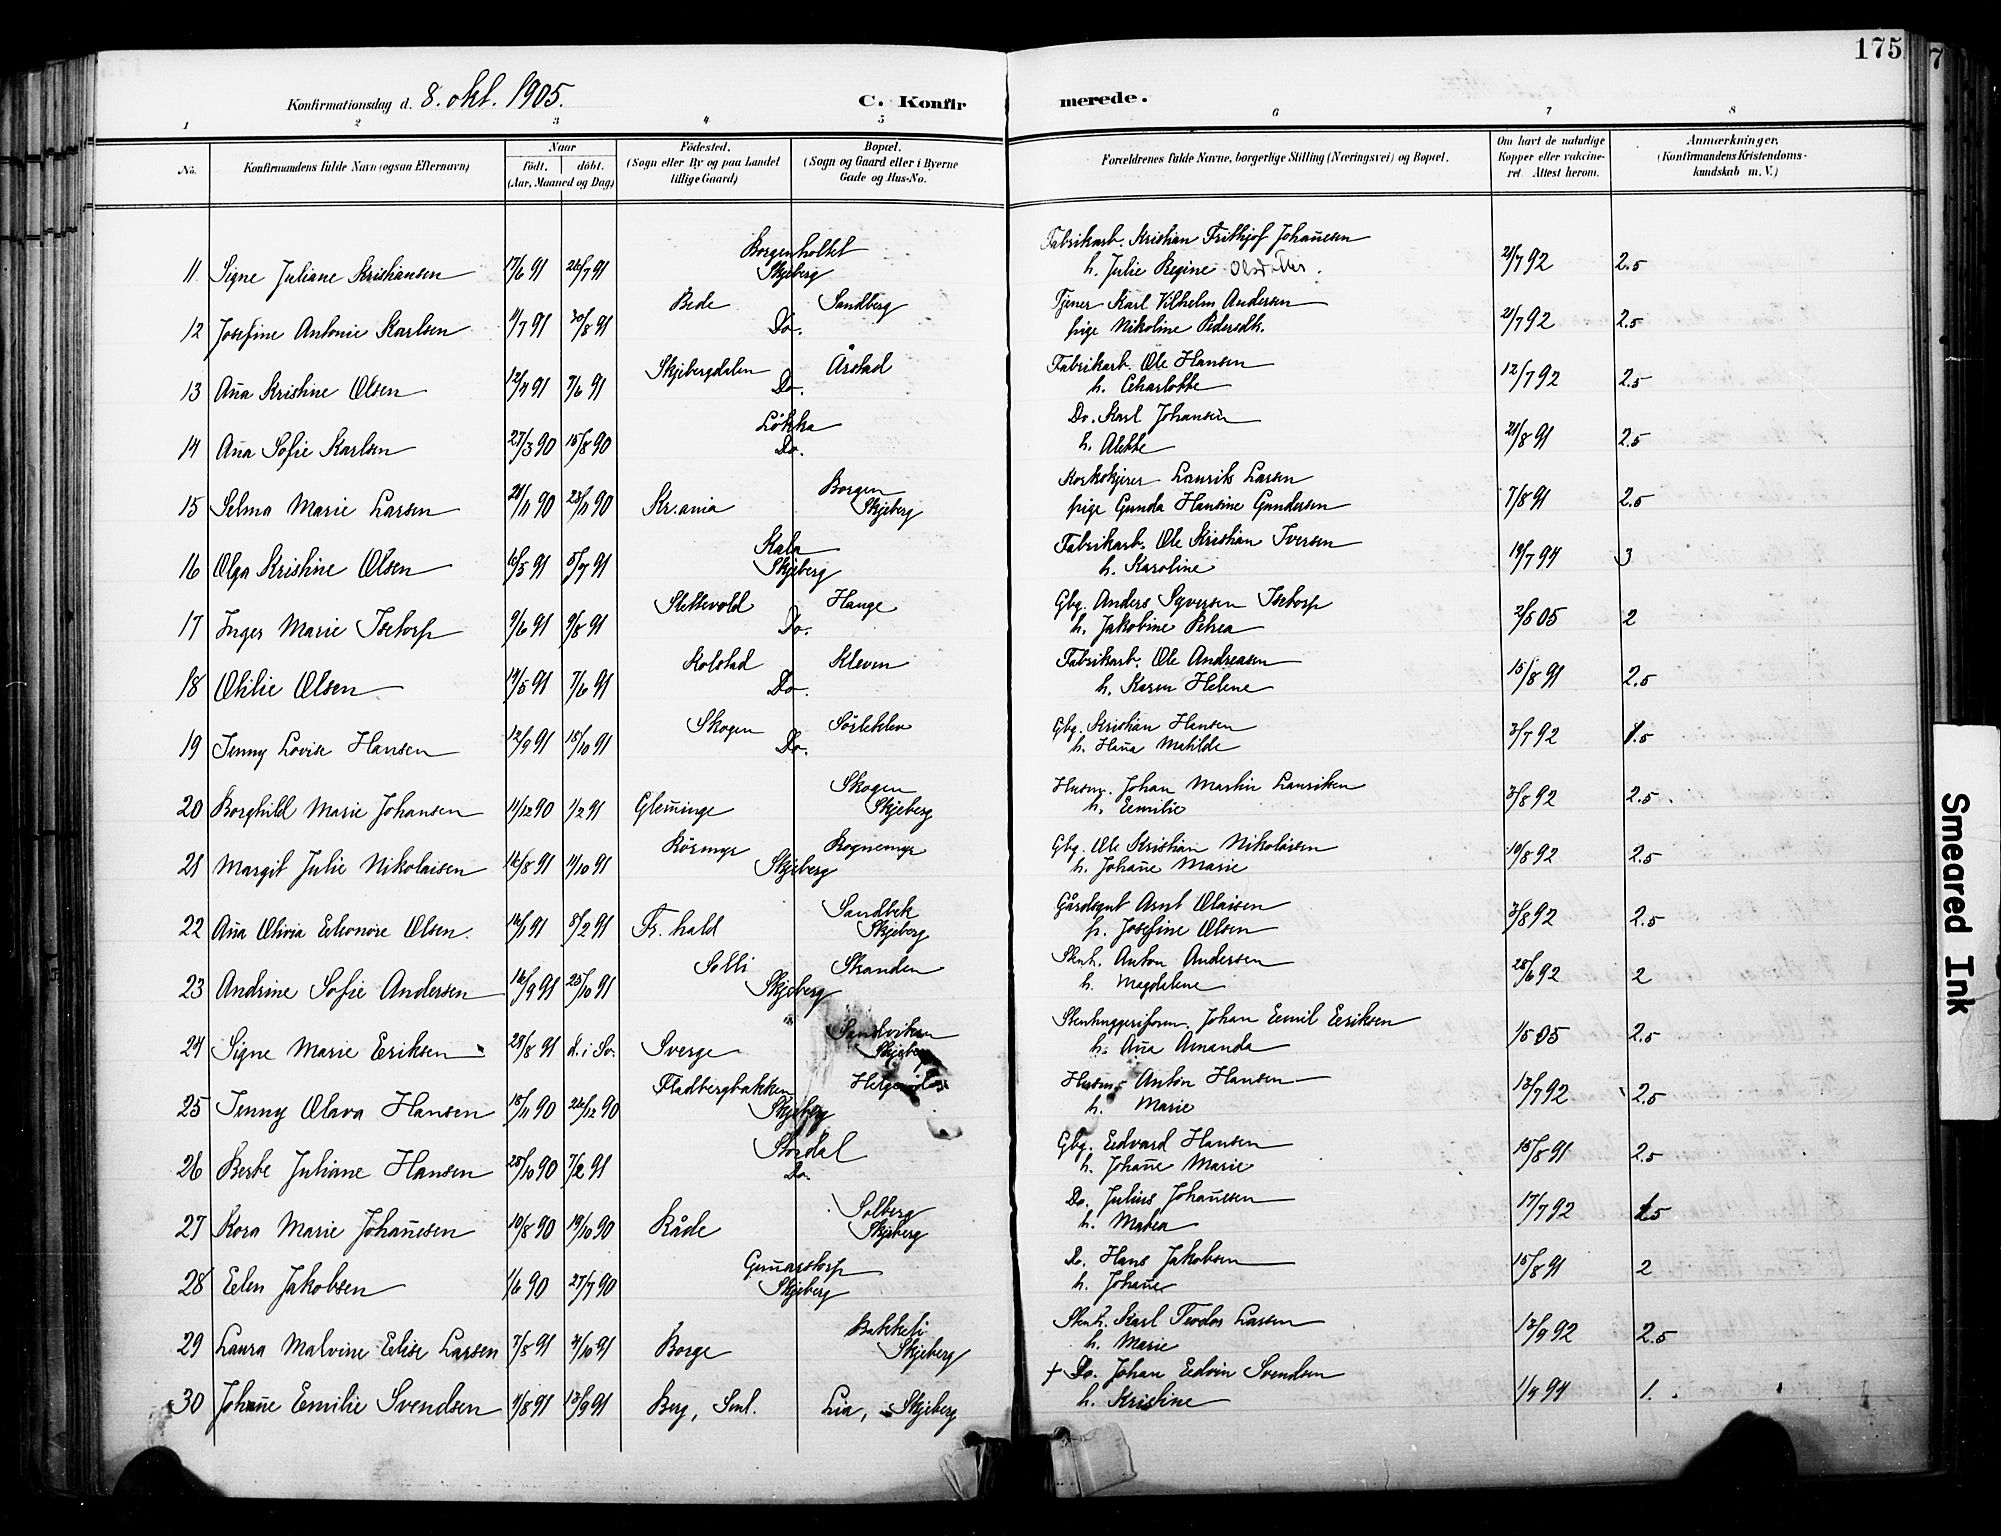 175
7
Konfirmationsdag d. 8. okt. 1905.
C. Konfirmerede.
1 2 3 4 5 6 7 8
No.
Konfirmandens fulde Navn (ogsaa Efternavn)
Naar
født. døbt.
(Aar, Maaned og Dag)
Fødested.
(Sogn eller By og paa Landet
tillige Gaard)
Bopæl.
(Sogn og Gaard eller i Byerne
Gade og Hus-No.
Forældrenes fulde Navne, borgerlige Stilling (Næringsvei) og Bopæl.
Om havt de naturlige
Kopper eller vakcine-
ret. Attest herom.
Anmærkninger.
(Konfirmandens Kristendoms-
kundskab m. V.)
Borgenholtet Fabrikarb. Kristian Frithjof Johan̄esen
11 Signe Juliane Kristiansen 17/6 91 26/7 91 Skjeberg h. Julie Regine Olsdatter. 21/7 92 2.5
Bede Sandberg Tjener Karl Vilhelm Andersen
12 Josefine Antonie Karlsen 11/7 91 30/8 91 Do. pige Nikoline Pedersdtr. 21/7 92 2.5
Skjebergdalen Årstad Fabrikarb. Ole Hansen
13 An̄a Kristine Olsen 12/4 91 7/6 91 Do. h. Charlotte 12/7 92 2.5
Løkka Do. Karl Johansen
14 An̄a Sofie Karlsen 27/3 90 15/8 90 Do. h. Alette 21/8 91 2.5
Borgen Korkskjærer Laurits Larsen
15 Selma Marie Larsen 21/11 90 23/11 90 Kr.ania Skjeberg pige Gunda Hansine Gundersen 7/8 91 2.5
Kala Fabrikarb. Ole Kristian Iversen
16 Olga Kristine Olsen 16/5 91 5/7 91 Skjeberg h. Karoline 19/7 94 3
Slettevold Hauge Gbg. Anders Syversen Isetorp
17 Inger Marie Isetorp 9/6 91 9/8 91 Do. h. Jakobine Petrea 2/5 05 2
Kolstad Kleven Fabrikarb. Ole Andreasen
18 Othilie Olsen 14/5 91 7/6 91 Do. h. Karen Helene 15/8 91 2.5
Skogen Sørlekleв Gbg. Kristian Hansen
19 Jenny Lovise Hansen 12/9 91 18/10 91 Do. h. Han̄a Matilde 3/7 92 1.5
Skogen Husm. Johan Martin Lauritsen
20 Borghild Marie Johansen 11/12 90 1/2 91 Glem̄inge Skjeberg h. Emilie 3/8 92 2.5
Rørmyr Rognemyr Gbg. Ole Kristian Nikolaisen
21 Margit Julie Nikolaisen 16/8 91 11/10 91 Skjeberg h. Johan̄e Marie 10/8 92 2.5
Sandbek Gårdsgut Arnt Olaisen
22 An̄a Olivia Eleonore Olsen. 16/1 91 8/2 91 Fr. hald Skjeberg p. Josefine Olsen 3/8 92 2.5
Solli Skanden Stenh. Anton Andersen
23 Andrine Sofie Andersen 16/9 91 25/10 91 Skjeberg h. Magdalene 28/6 92 2
Sandviken Stenhuggeriform. Johan Emil Eriksen
24 Signe Marie Eriksen 28/8 91 d. i Sv. Sverge Skjeberg h. An̄a Amanda 1/5 05 2.5
Fladbergbakken Husm. Anton Hansen
25 Jenny Olava Hansen 18/11 90 26/12 90 Skjeberg h. Marie 13/7 92 2.5
Stordal Gbg. Edvard Hansen
26 Berte Juliane Hansen 25/10 90 7/2 91 Do. h. Johan̄e Marie 15/8 91 2.5
Solberg Do. Julius Johan̄esen
27 Kora Marie Johan̄esen 10/8 90 19/10 90 Råde Skjeberg h. Matea 17/7 92 1.5
Gun̄arstorp Do. Hans Jakobsen
28 Elen Jakobsen 1/6 90 27/7 90 Skjeberg h. Johan̄e 15/8 91 2
Bakkeli Stenh. Karl Teodor Larsen
29 Laura Malvine Elise Larsen 7/5 91 4/10 91 Borge Skjeberg h. Marie 13/9 92 2.5
† Do. Johan Edvin Svendsen
30 Johan̄e Emilie Svendsen 11/8 91 13/9 91 Berg, Sml. Lia, Skjeberg h. Kristine 1/9 94 1.
Smeared Ink